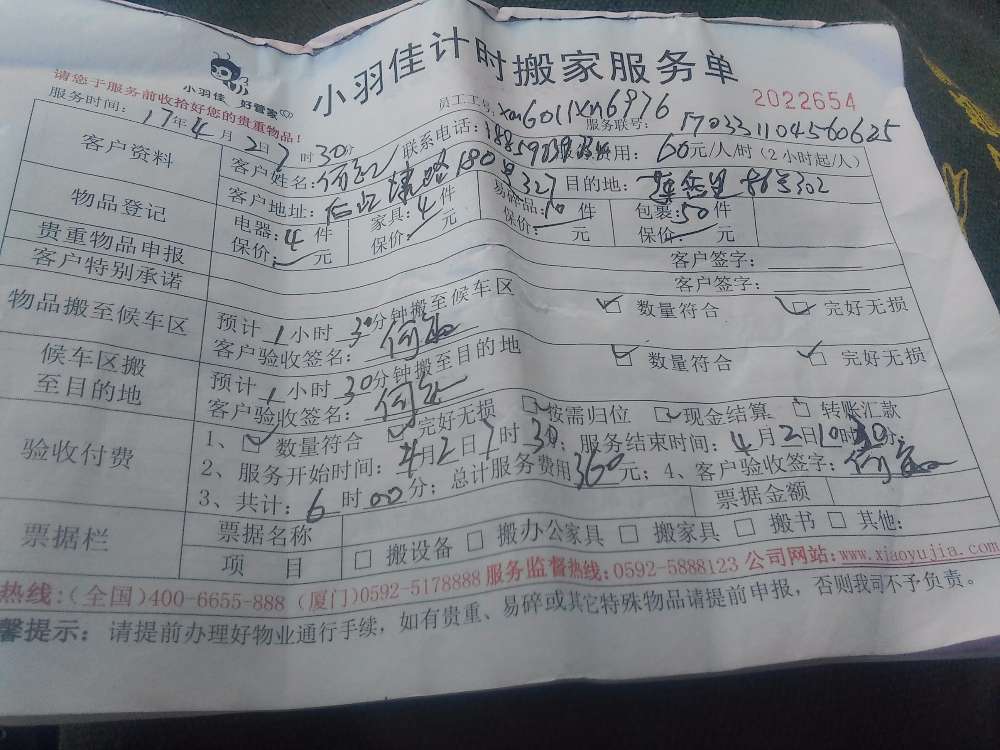 小羽佳 好管家
小羽佳计时搬家服务单
2022654
请您于服务前收拾好您的贵重物品!
员工工号: xm6011xm6976
服务时间: 17年4月2日7时30分
服务联号: 170331104560625
客户资料
客户姓名: 联系电话: 服务费用: 60元/人/时(2小时起/人)
客户地址: 180号327 目的地: 302
物品登记
电器: 4 件 家具: 4 件 易碎品: 10 件 包裹: 50 件
贵重物品申报
保价: 元 保价: 元 保价: 元 保价: 元
客户特别承诺
客户签字:
客户签字:
物品搬至候车区
预计 1 小时 30分钟搬至候车区 数量符合 完好无损
客户验收签名:
候车区搬
至目的地
预计 1 小时 30分钟搬至目的地 数量符合 完好无损
客户验收签名:
验收付费
1、 数量符合 完好无损 按需归位 现金结算 转账汇款
2、服务开始时间: 4月2日7时30分; 服务结束时间: 4月2日10时30分;
3、共计: 6 时00分; 总计服务费用360元; 4、客户验收签字:
票据栏
票据名称 票据金额
项目 搬设备 搬办公家具 搬家具 搬书 其他:
热线:(全国)400-6655-888 (厦门)0592-5178888 服务监督热线:0592-5888123 公司网站:www.xjaoyujia.com
馨提示: 请提前办理好物业通行手续, 如有贵重、易碎或其它特殊物品请提前申报, 否则我司不予负责。